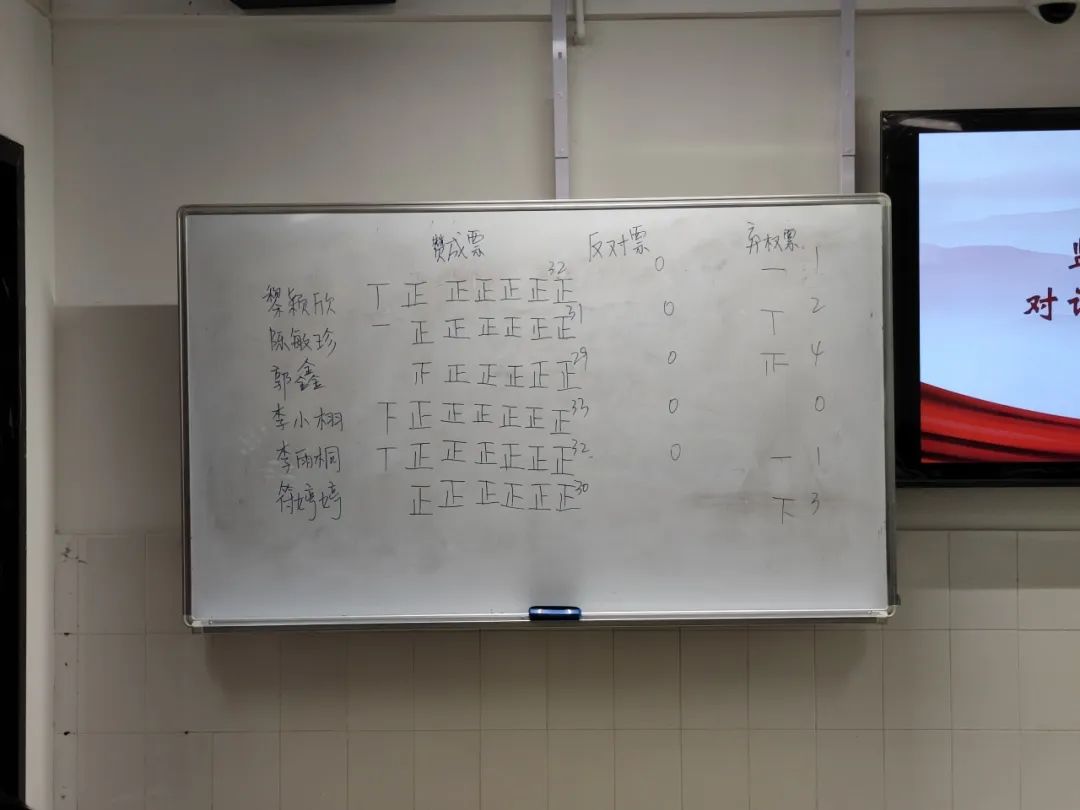 赞成票 反对票 弃权票
黎颖欣 丅 正 正 正 正 正 正 32 0 一 1
陈敏珍 一 正 正 正 正 正 正 31 0 丅 2
郭鑫 正 正 正 正 正 正 29 0 正 4
李小栩 下 正 正 正 正 正 正 33 0 0
李雨桐 丅 正 正 正 正 正 正 32 0 一 1
符婷婷 正 正 正 正 正 正 30 下 3
对